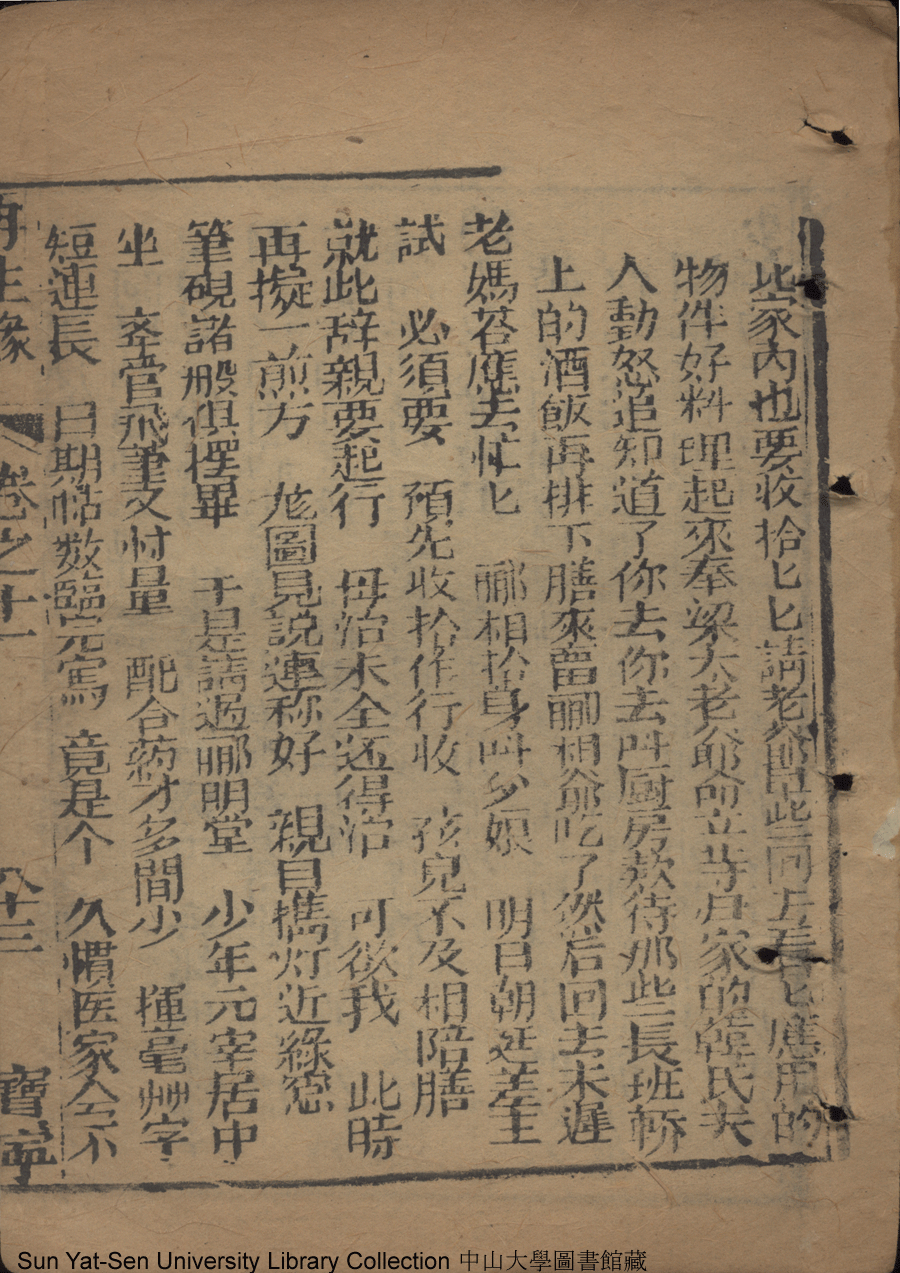 此家内也要收拾匕匕請老爺早些回去看匕應用的
物件好料理起來奉梁太老爺命立等君家的韓氏夫
人動怒追知道了你去你去叫厨房欵待那些長班轎
上的酒飯再排下膳來畱酈相爺吃了然后回去未遲
老媽荅應去忙匕 酈相抬身叫乡娘 明日朝廷差主
試 必須要 預先收拾作行收 孩兒不及相陪膳
就此辞親要起行 母治未全还得治 可欲我 此時
再擬一煎方 龙圖見説連称好 親自擕灯近綠窓
筆硯諸般俱擺畢 于是請過酈明堂 少年元宰居中
坐 斉管飛筆又忖量 配合葯才多間少 揮毫艸字
短連長 日期帖数臨完寫 竟是个 久慣医家会不
再生緣 卷之十一 八十三 寶寧
Sun Yat-Sen University Library Collection 中山大學圖書館藏